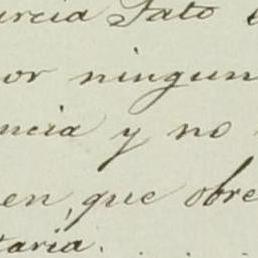 urcia Pato
or ningun
ncia y no
en, que obre
taria.